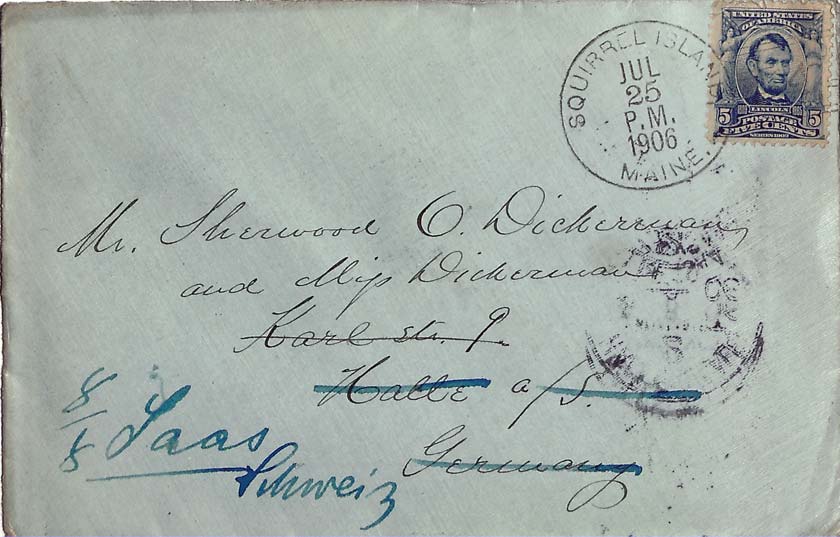 SQUIRREL ISLAND
JUL
25
P.M.
1906
MAINE.
UNITED STATES
OF AMERICA
LINCOLN
5 POSTAGE 5
FIVE CENTS
SERIES 1902
Mr. Sherwood O. Dickerman,
and Miss Dickerman
Karl str. 9.
Halle a/S.
Germany
8/8 Saas
Schweiz